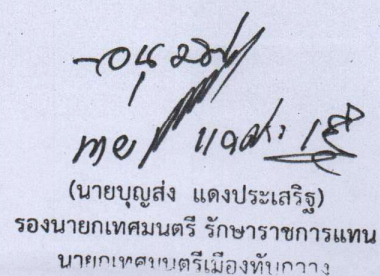 -อนุมัติ
(นายบุญส่ง แดงประเสริฐ)
รองนายกเทศมนตรี รักษาราชการแทน
นายกเทศมนตรีเมืองทับกวาง